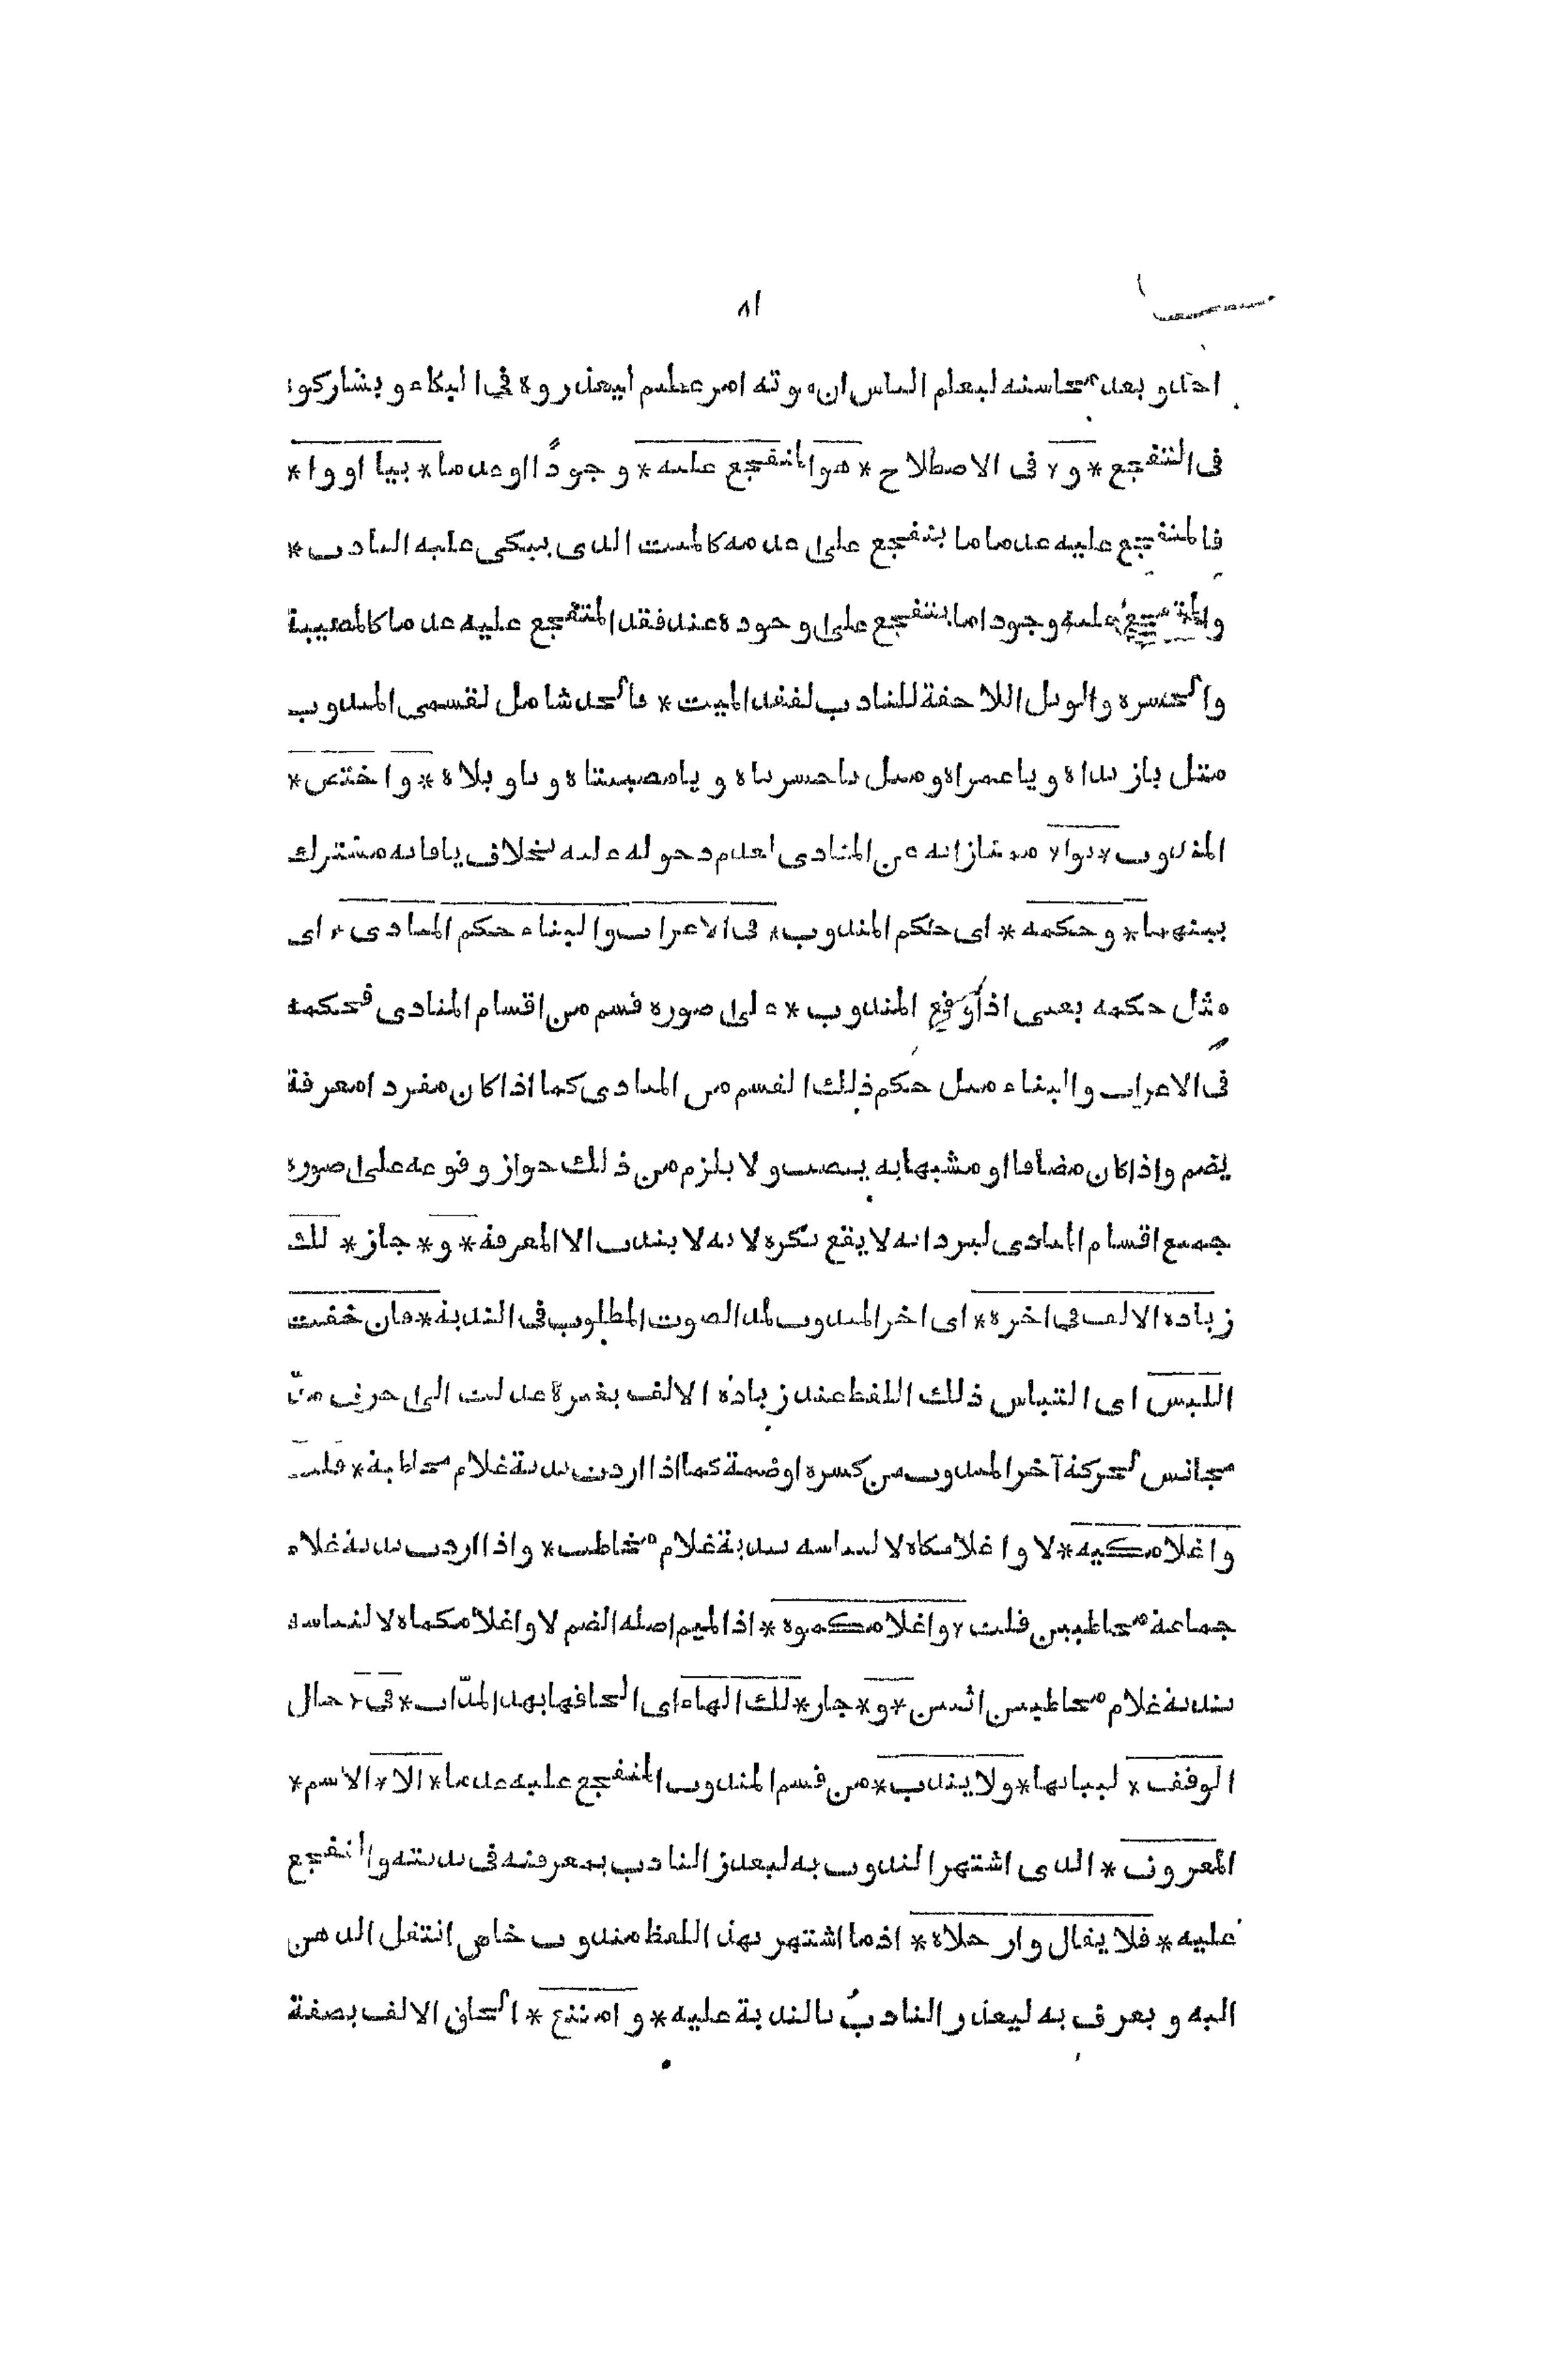 ٨١
احد و يعد محاسنه ليعلم الناس ان موته امر عظيم ليعذروه فى البكاء و يشاركوه
فى التفجع * و * فى الاصطلاح * هو المتفجع عليه * وجودًا او عدما * بيا او وا *
فالمتفجع عليه عدما ما يتفجع على عدمه كالميت الذى يبكى عليه النادب *
والمتفجع عليه وجودا ما يتفجع على وجوده عند فقد المتفجع عليه عدما كالمصيبة
والحسرة والويل اللاحقة للنادب لفقد الميت * فالحد شامل لقسمى المندوب
مثل يا زيداه و يا عمراه و مثل يا حسرتاه و يا مصيبتاه و يا ويلاه * و اختص *
المندوب * بوا * ممتازا به عن المنادى لعدم دخوله عليه بخلاف يا فانه مشترك
بينهما * و حكمه * اى حكم المندوب * فى الاعراب والبناء حكم المنادى * اى
مثل حكمه يعنى اذا وقع المندوب * على صورة قسم من اقسام المنادى فحكمه
فى الاعراب والبناء مثل حكم ذلك القسم من المنادى كما اذا كان مفردا معرفة
يضم واذا كان مضافا او مشبها به ينصب ولا يلزم من ذلك جواز وقوعه على صورة
جميع اقسام المنادى ليرد انه لا يقع نكرة لانه لا يندب الا المعرفة * و * جاز * لك
زيادة الالف فى اخره * اى اخر المندوب لمد الصوت المطلوب فى الندبة * فان خفت
اللبس اى التباس ذلك اللفظ عند زيادة الالف بغيره عدلت الى حرف مدّ
مجانس لحركة آخر المندوب من كسرة او ضمة كما اذا اردت ندبة غلام مخاطبة * قلت
واغلامكيه * لا واغلامكاه لالتباسه بندبة غلام مخاطب * واذا اردت ندبة غلام
جماعة مخاطبين قلت * واغلامكموه * اذ الميم اصله الضم لا واغلامكماه لالتباسه
بندبة غلام مخاطبين اثنين * و * جاز * لك الهاء اى الحاقها بهذه المدّات * فى * حال
الوقف * لبيانها * ولا يندب * من قسم المندوب المتفجع عليه عدما * الا * الاسم *
المعروف * الذى اشتهر المندوب به ليعذر النادب بمعرفته فى ندبته والتفجع
عليه * فلا يقال وارجلاه * اذ ما اشتهر بهذا اللفظ مندوب خاص انتقل الذهن
اليه و يعرف به ليعذر النادبُ بالندبة عليه * و امتنع * الحاق الالف بصفة